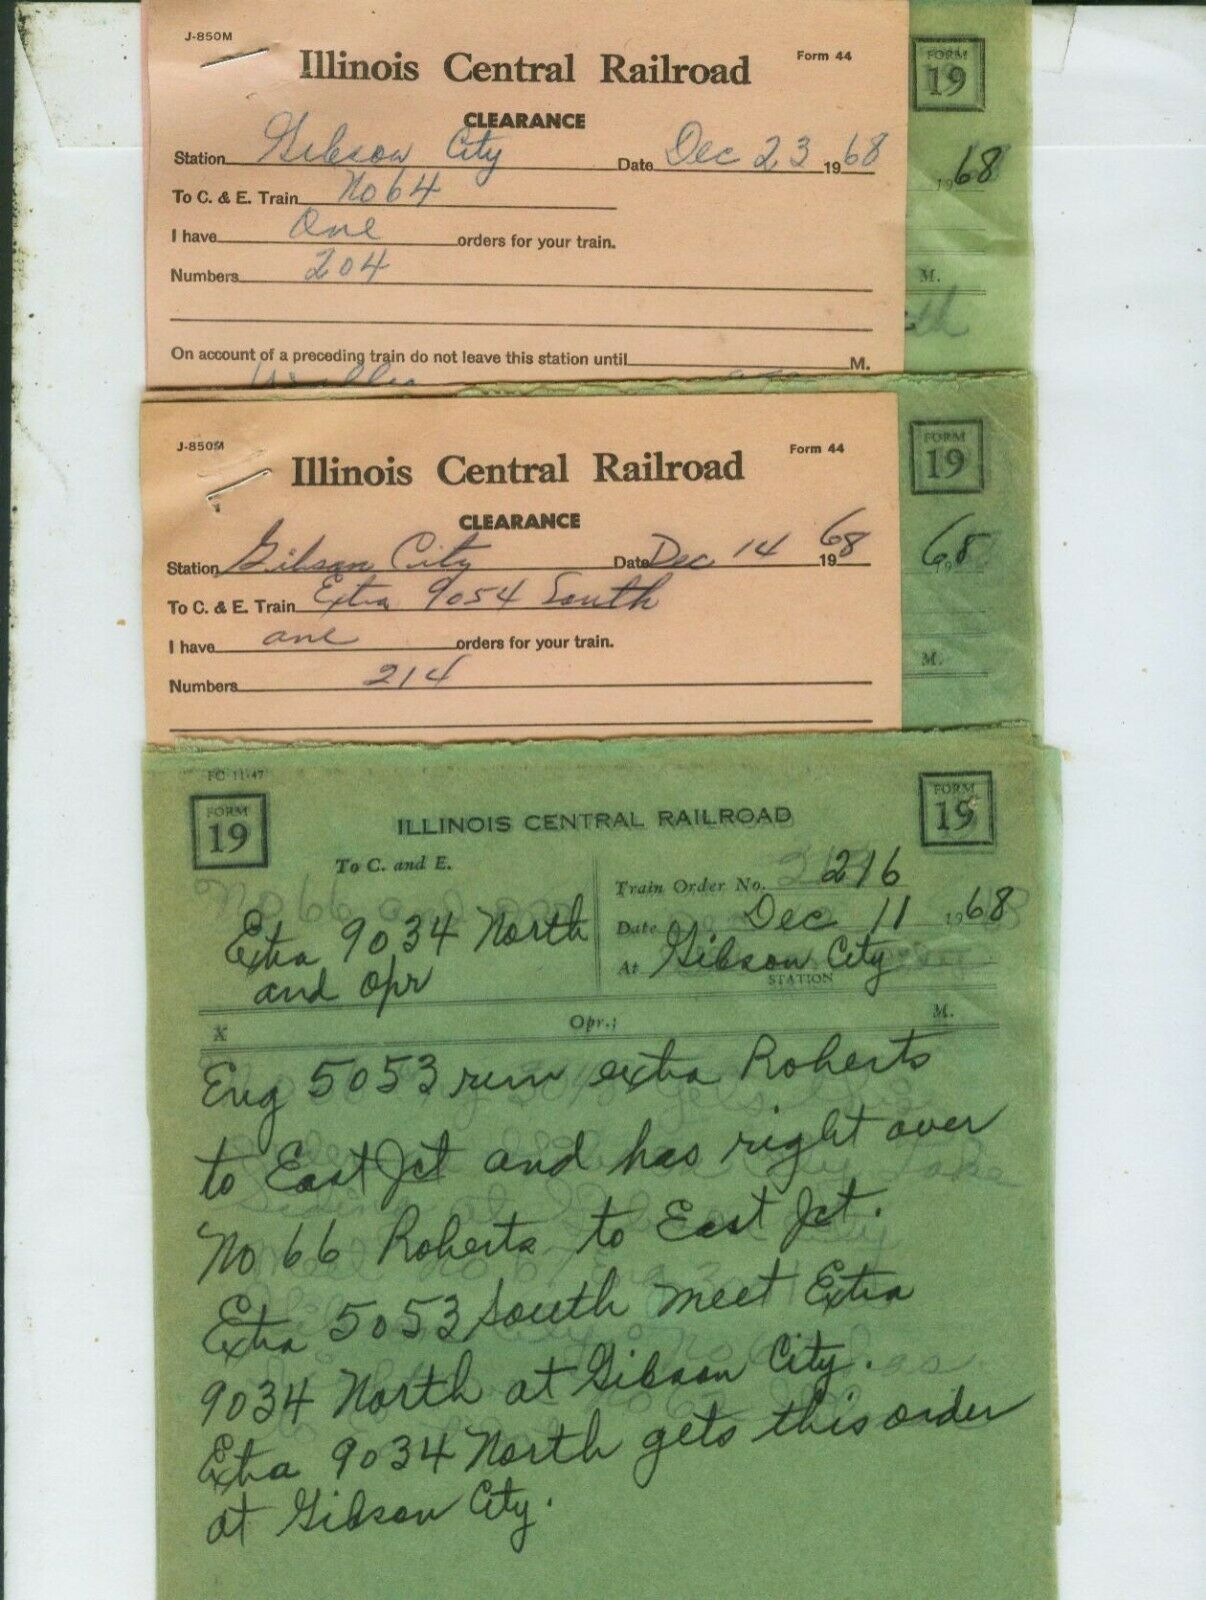 J-850M
Illinois Central Railroad
Form 44
FORM
19
CLEARANCE
Station Gibson City Date Dec 23 1968
1968
To C. & E. Train No 64
I have One orders for your train.
Numbers 204
M.
On account of a preceding train do not leave this station until M.
J-850M
Illinois Central Railroad
Form 44
FORM
19
CLEARANCE
Station Gibson City Date Dec 14 1968
1968
To C. & E. Train Extra 9054 South
I have one orders for your train.
M.
Numbers 214
FC 11-47
FORM
19
ILLINOIS CENTRAL RAILROAD
FORM
19
To C. and E.
Train Order No. 216
Extra 9034 North
and opr
Date Dec 11 1968
At Gibson City
STATION
X Opr.; M.
Eng 5053 run extra Roberts
to East Jct and has right over
No 66 Roberts to East Jct.
Extra 5053 South meet Extra
9034 North at Gibson City.
Extra 9034 North gets this order
at Gibson City.